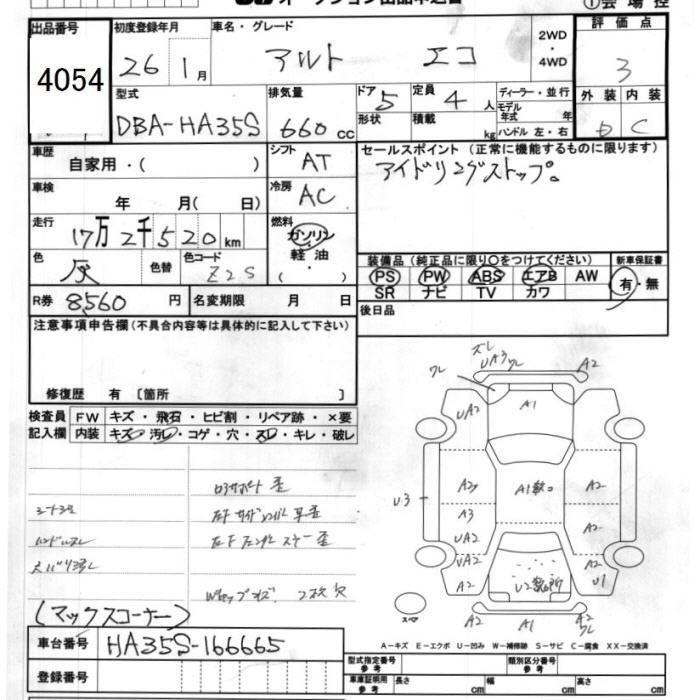 オークション出品申込書
①会場控
出品番号 初度登録年月 車名・グレード 2WD・4WD 評価点
4054 26 1月 アルト エコ 3
型式 排気量 ドア 5 定員 4人 ディーラー・並行 外装 内装
DBA-HA35S 660cc 形状 積載 kg モデル年式 年 ハンドル 左・右 C
車歴 自家用・( ) シフト AT セールスポイント (正常に機能するものに限ります)
車検 年 月( 日) 冷房 AC アイドリングストップ。
走行 17万2千520km 燃料 ガソリン 軽油・( )
色 灰 色替 色コード Z2S 装備品 (純正品に限り○をつけてください) 新車保証書
PS PW ABS エアB AW 有・無
SR ナビ TV カワ
R券 8560円 名変期限 月 日 後日品
注意事項申告欄(不具合内容等は具体的に記入して下さい)
修復歴 有 〔箇所 〕
検査員記入欄 FW キズ・飛石・ヒビ割・リペア跡・×要
内装 キズ・汚レ・コゲ・穴・スレ・キレ・破レ
ズレ
ワレ UA3 ワレ A2
UA2 A1 A2
A2 A1 A2
U3 A3 A2
UA2
UA2 A2
A2 U2 U1
A2 A1 A2
ワレ
(マックスコーナー)
A-キズ E-エクボ U-凹み W-補修跡 S-サビ C-腐食 XX-交換済
車台番号 HA35S-166665
登録番号
型式指定番号 参考 類別区分番号 参考
車庫証明用 参考 長さ cm 幅 cm 高さ cm